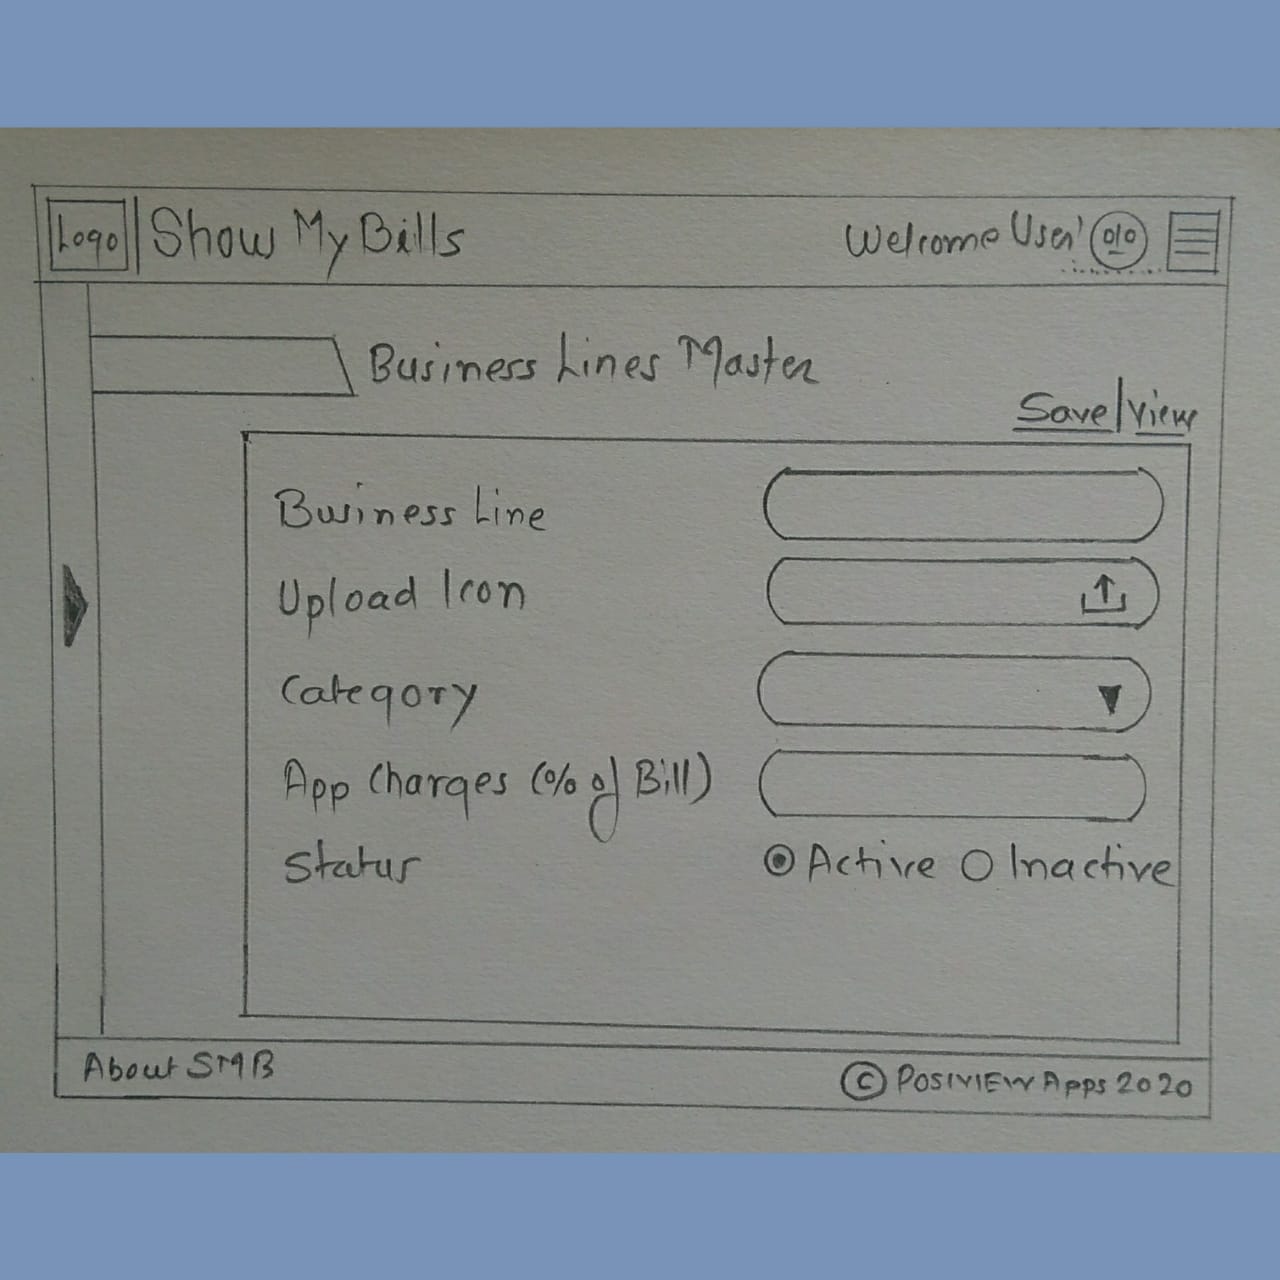 Logo Show My Bills Welcome User
Business Lines Master
Save/View
Business Line
Upload Icon
Category
App Charges (% of Bill)
Status Active Inactive
About SMB © POSIVIEW Apps 2020